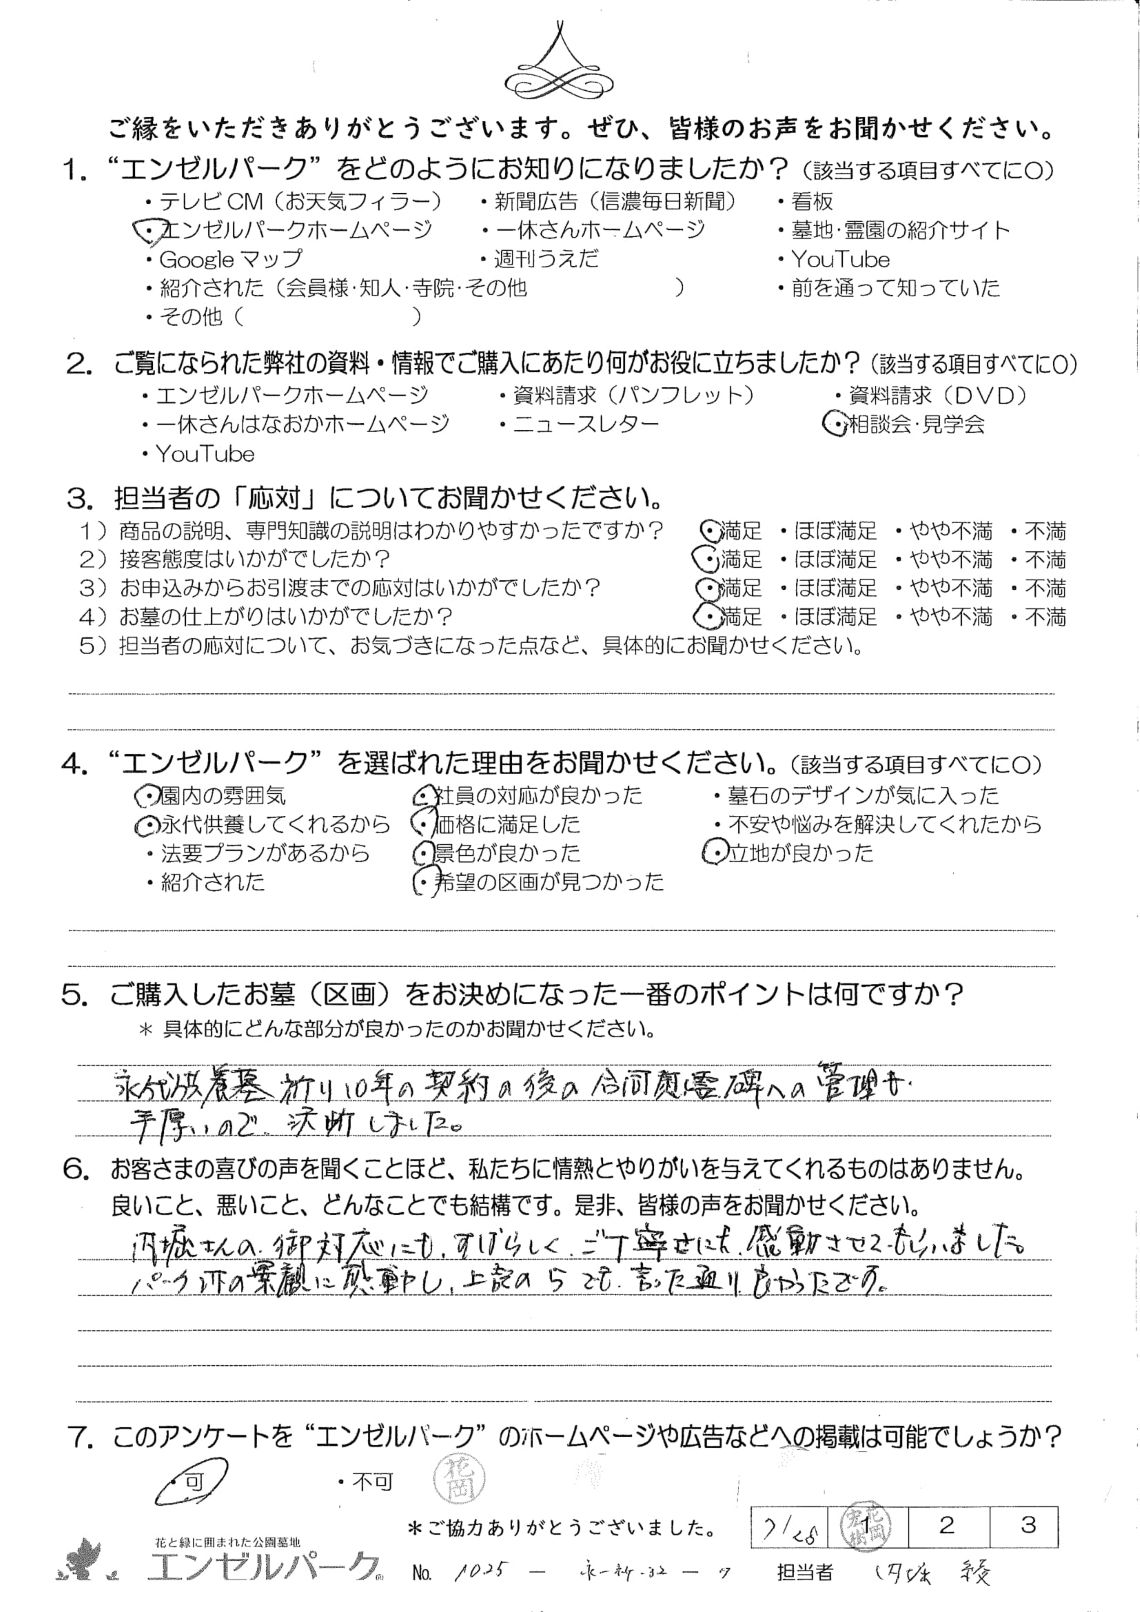 ご縁をいただきありがとうございます。ぜひ、皆様のお声をお聞かせください。
1. “エンゼルパーク”をどのようにお知りになりましたか？（該当する項目すべてに○）
・テレビCM（お天気フィラー） ・新聞広告（信濃毎日新聞） ・看板
・エンゼルパークホームページ ・一休さんホームページ ・墓地・霊園の紹介サイト
・Googleマップ ・週刊うえだ ・YouTube
・紹介された（会員様・知人・寺院・その他 ） ・前を通って知っていた
・その他（ ）
2. ご覧になられた弊社の資料・情報でご購入にあたり何がお役に立ちましたか？（該当する項目すべてに○）
・エンゼルパークホームページ ・資料請求（パンフレット） ・資料請求（DVD）
・一休さんはなおかホームページ ・ニュースレター ・相談会・見学会
・YouTube
3. 担当者の「応対」についてお聞かせください。
1）商品の説明、専門知識の説明はわかりやすかったですか？ ・満足 ・ほぼ満足 ・やや不満 ・不満
2）接客態度はいかがでしたか？ ・満足 ・ほぼ満足 ・やや不満 ・不満
3）お申込みからお引渡までの応対はいかがでしたか？ ・満足 ・ほぼ満足 ・やや不満 ・不満
4）お墓の仕上がりはいかがでしたか？ ・満足 ・ほぼ満足 ・やや不満 ・不満
5）担当者の応対について、お気づきになった点など、具体的にお聞かせください。
4. “エンゼルパーク”を選ばれた理由をお聞かせください。（該当する項目すべてに○）
・園内の雰囲気 ・社員の対応が良かった ・墓石のデザインが気に入った
・永代供養してくれるから ・価格に満足した ・不安や悩みを解決してくれたから
・法要プランがあるから ・景色が良かった ・立地が良かった
・紹介された ・希望の区画が見つかった
5. ご購入したお墓（区画）をお決めになった一番のポイントは何ですか？
＊ 具体的にどんな部分が良かったのかお聞かせください。
永代供養墓 祈り10年の契約の後の合同慰霊碑への管理も
手厚いので、決断しました。
6. お客さまの喜びの声を聞くことほど、私たちに情熱とやりがいを与えてくれるものはありません。
良いこと、悪いこと、どんなことでも結構です。是非、皆様の声をお聞かせください。
内堀さんの御対応にも、すばらしく、ご丁寧さにも、感動させてもらいました。
パーク内の景観に感動し、上記の5でも、言った通り良かったです。
7. このアンケートを“エンゼルパーク”のホームページや広告などへの掲載は可能でしょうか？
・可 ・不可 花岡
＊ご協力ありがとうございました。 7/28 1 2 3
花と緑に囲まれた公園墓地
エンゼルパーク No. 1025 － 永-祈-32 － 7 担当者 内堀 綾